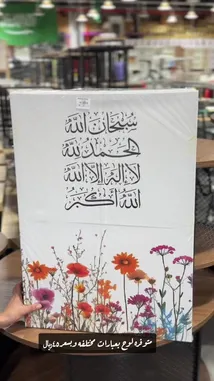 سُبْحَانَ اللَّه
الحَمْدُ لِلَّه
لَا إِلَهَ إِلَّا اللَّه
اللَّهُ أَكْبَر
متوفره لوح بعبارات مختلفه وبسعر ٤٥ريال